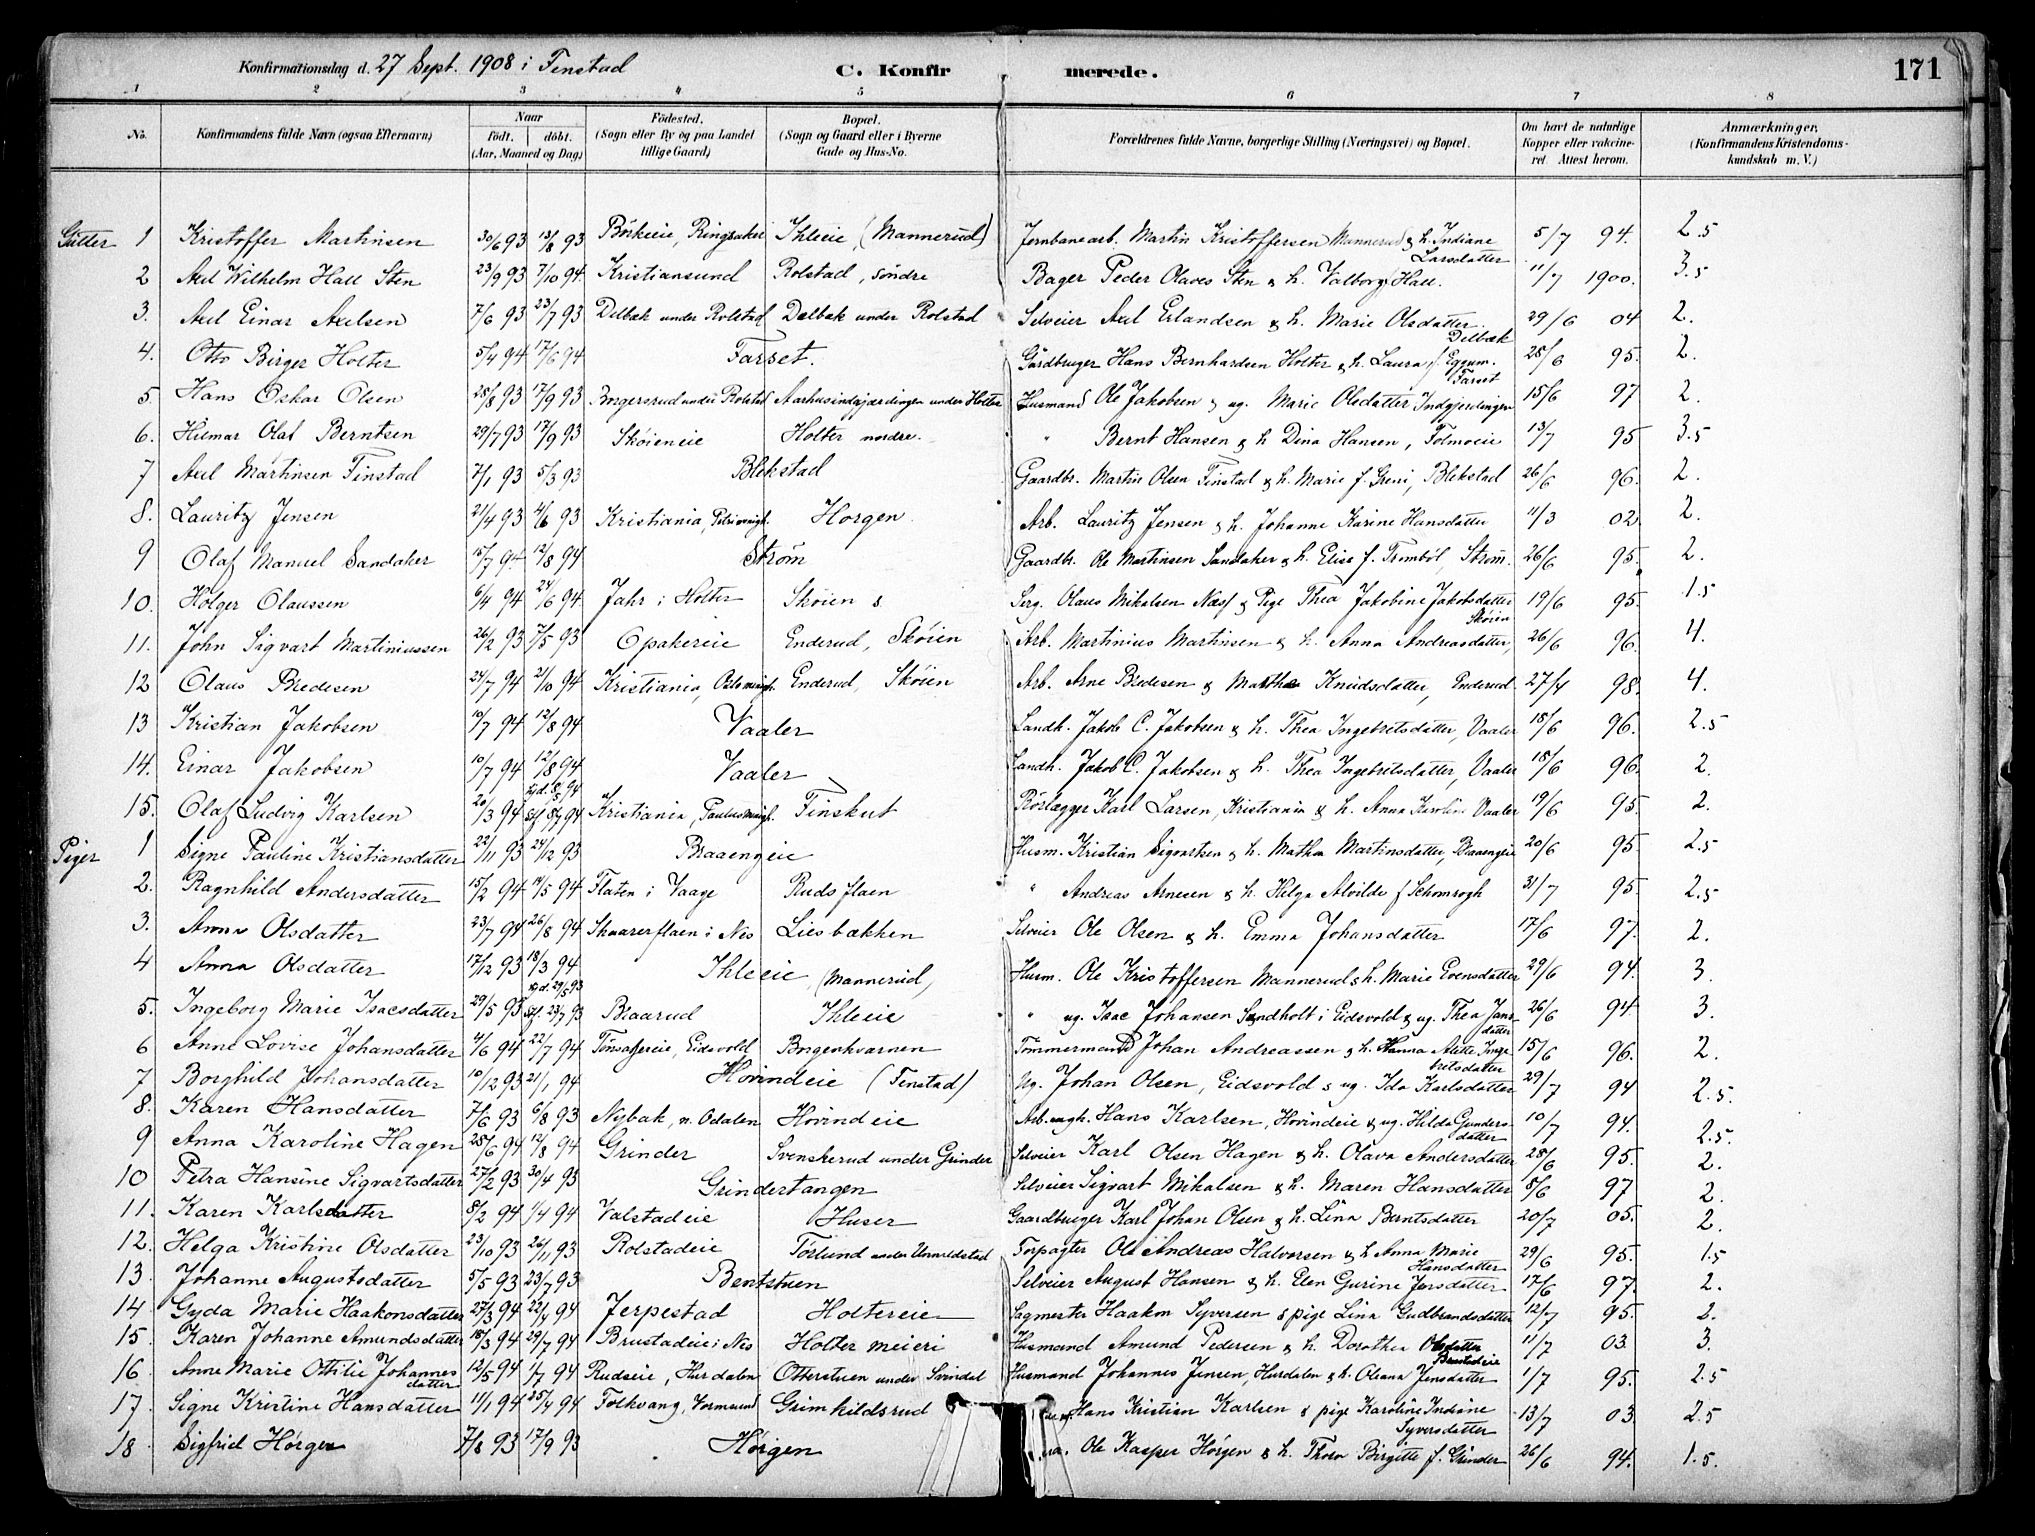 Konfirmationsdag d. 27 Sept. 1908 i Tenstad C. Konfirmerede. 171
1 2 3 4 5 6 7 8
No. Konfirmandens fulde Navn (ogsaa Efternavn) Naar født. døbt. (Aar, Maaned og Dag) Fødested. (Sogn eller By og paa Landet tillige Gaard) Bopæl. (Sogn og Gaard eller i Byerne Gade og Hus-No. Forældrenes fulde Navne, borgerlige Stilling (Næringsvei) og Bopæl. Om havt de naturlige Kopper eller vakcineret. Attest herom. Anmærkninger. (Konfirmandens Kristendomskundskab m. V.)
Gutter 1 Kristoffer Martinsen 30/6 93 13/8 93 Börkeeie, Ringsaker Ihleeie (Mannerud) Jernbanearb. Martin Kristoffersen Mannerud & h. Indiane Larsdatter 5/7 94. 2.5
2 Axel Wilhelm Hall Sten 23/9 93 7/10 94 Kristiansund Rolstad, söndre Bager Peder Olaves Sten & h. Valborg Hall. 11/7 1900. 3.5
3. Axel Einar Axelsen 7/6 93 23/7 93 Delbæk under Rolstad Delbæk under Rolstad Selveier Axel Erlandsen & h. Marie Olsdatter Delbæk 29/6 04 2.
4. Otto Birger Holter 5/4 94 17/6 94 Farset. Gårdbruger Hans Bernhardsen Holter & h. Laura f. Eggum. Farset 25/6 95. 2.
5. Hans Oskar Olsen 28/8 93 17/9 93 Borgersrud under Rolstad Aarhusindgjærdingen under Holter Husmand Ole Jakobsen & ug. Marie Olsdatter Indgjerdingen 15/6 97 2.
6. Hilmar Olaf Berntsen 29/7 93 17/9 93 Skøieneie Holter nordre. " Bernt Hansen & h. Dina Hansen, Tolmoeie 13/7 95 3.5
7 Axel Martinsen Finstad 7/1 93 5/3 93 Blekstad Gaardbr. Martin Olsen Finstad & h. Marie f. Greni, Blekstad 26/6 96. 2.
8. Lauritz Jensen 21/4 93 4/6 93 Kristiania, Petri menigh. Horgen Arb. Lauritz Jensen & h. Johanne Karine Hansdatter 11/3 02. 2.
9 Olaf Manuel Sandaker 15/7 94 12/8 94 Strøm Gaardbr. Ole Martinsen Sandaker & h. Elise f. Trombøl, Strøm. 26/6 95. 2.
10. Holger Olaussen 6/4 94 24/6 94 Jahr i Holter Skøien s. Serg. Olaus Mikalsen Næss & Pige Thea Jakobine Jakobsdatter Skøien 19/6 95. 1.5
11. John Sigvart Martiniussen 26/2 93 7/5 93 Opakereie Enderud, Skøien Arb. Martinius Martinsen & h. Anna Andreasdatter, 26/6 96. 4.
12 Olaus Bredesen 24/7 94 21/10 94 Kristiania, Oslo menigh. Enderud, Skøien Arb. Arne Bredesen & Mathea Knudsdatter, Enderud 27/4 98. 4.
13 Kristian Jakobsen 10/7 94 12/8 94 Vaaler Landh. Jakob C. Jakobsen & h. Thea Ingebretsdatter, Vaaler 18/6 96. 2.5
14. Einar Jakobsen 10/7 94 12/8 94 Vaaler Landh. Jakob C. Jakobsen & h. Thea Ingebretsdatter, Vaaler 18/6 96. 2.
15. Olaf Ludvig Karlsen 20/3 94 Kristiania, Paulus menigh. Finskut Rørlægger Karl Larsen, Kristiania & h. Anna Karoline Vaaler 19/6 95. 2.
Piger 1 Signe Pauline Kristiansdatter 22/11 93 24/12 93 Braaengeie Husm. Kristian Sigvartsen & h. Mathea Martinsdatter, Braaengeie 20/6 95. 2.5
2. Ragnhild Andersdatter 15/2 94 14/5 94 Flaten i Vaage Rudsflaen " Andreas Arnesen & h. Helga Alvilde f. Schomrogh 31/7 95. 2.5
3. Anna Olsdatter 23/7 94 26/8 94 Skaarerflaen i Nes Liesbakken Selveier Ole Olsen & h. Emma Johansdatter 17/6 97. 2.
4 Anna Olsdatter 17/12 93 18/3 94 Ihleeie (Mannerud, Husm. Ole Kristoffersen Mannerud & h. Marie Evensdatter 29/6 94. 3.
5. Ingeborg Marie Isacsdatter 29/5 93 Blaarud Ihleeie " ug. Isac Johansen Sandholt i Eidsvold & ug. Thea Jansdatter 26/6 94 3.
6 Anne Lovise Johansdatter 4/6 94 22/7 94 Tønsagereie, Eidsvold Borgenkvarnen Tømmermand Johan Andreassen & h. Hanna Alette Ingebretsdatter 15/6 96. 2.
7 Borghild Johansdatter 10/12 93 21/1 94 Hovindeie (Tenstad) Ug. Johan Olsen, Eidsvold & ug. Ida Karlsdatter 29/7 94 2.5.
8. Karen Hansdatter 7/6 93 6/8 93 Nybak, n. Odalen Hovindeie Arb. ungk. Hans Karlsen, Hovindeie & ug. Hilda Gundersdatter 10/7 94. 2.5.
9 Anna Karoline Hagen 25/6 94 12/8 94 Grinder Svenskerud under Grinder Selveier Karl Olsen Hagen & h. Olava Andersdatter 25/6 95. 2.
10 Petra Hansine Sigvartsdatter 27/2 93 30/4 93 Grindertangen Selveier Sigvart Mikalsen & h. Maren Hansdatter 8/6 97 2.
11. Karen Karlsdatter 8/2 94 1/4 94 Valstadeie Huser Gaardbruger Karl Johan Olsen & h. Lina Berntsdatter 20/7 05. 2.
12. Helga Kristine Olsdatter 23/10 93 26/11 93 Rolstadeie Tørlund under Uvmeldstad Forpagter Ole Andreas Halvorsen & h. Anna Marie Hansdatter 29/6 95. 1.5
13. Johanne Augustsdatter 5/5 93 23/7 93 Bentstuen Selveier August Hansen & h. Elen Gurine Jensdatter 17/6 97. 2.
14 Gyda Marie Haakonsdatter 25/3 94 22/4 94 Jerpestad Holtereie Sagmester Haakon Syversen & pige Lina Gudbrandsdatter 12/7 95. 2.
15. Karen Johanne Amundsdatter 18/3 94 29/7 94 Brustadeie i Nes Holter meieri Husmand Amund Pedersen & h. Dorothea Olsdatter Brustadeie 11/7 03. 3.
16. Anne Marie Ottilie Johannesdatter 12/5 94 1/7 94 Rudseie, Hurdalen Otterstuen under Svindal Husmand Johannes Jensen, Hurdalen & h. Oleana Jensdatter 1/7 95. 2.5
17. Signe Kristine Hansdatter 11/1 94 25/4 94 Folkvang, Vormsund Grimkildsrud Hans Kristian Karlsen & pige Karoline Indiane Syversdatter 13/7 03 2.5
18 Sigfrid Hørgen 7/8 93 17/9 93 Hørgen Ole Kasper Hørgen & h. Thora Birgitte f. Grinder 26/6 94. 1.5.